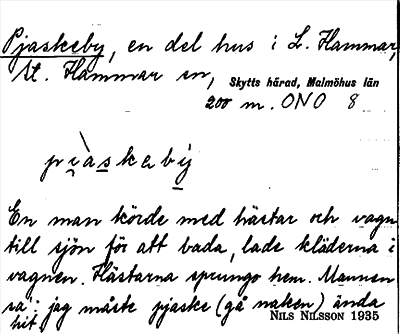 Pjaskeby, en del hus i L. Hammar,
St. Hammar sn,
Skytts härad, Malmöhus län
200 m. ONO 8
En man körde med hästar och vagn
till sjön för att bada, lade kläderna i
vagnen. Hästarna sprungo hem. Mannen
sa: jag måste pjaske (gå naken) ända
hit.
NILS NILSSON 1935